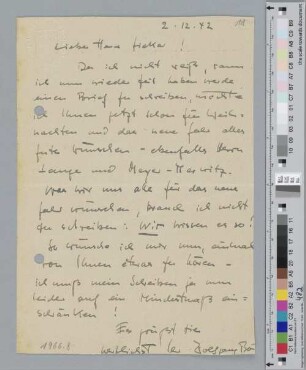 2.12.42
Liebe Hanna !
Da ich nicht weiß, wann
ich nun wieder Zeit haben werde
einen Brief zu schreiben, möchte
ich Ihnen jetzt schon für Weih-
nachten und das neue Jahr alles
gute wünschen - ebenfalls Herrn
Lange und Meyer-
Was wir uns alle für das neue
Jahr wünschen, brauch ich nicht
zu schreiben: Wir wissen es so!
So wünsche ich mir nun, einmal
von Ihnen etwas zu hören -
ich muß mein Schreiben ja nun
leider auf ein Mindestmaß ein-
schränken !
Es grüßt Sie
herzlichst Ihr Wolfgang
1966.8
482